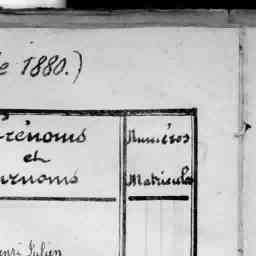 e 1880.)
Prénoms
et
Surnoms
Numéros
Matricules
Henri Julien